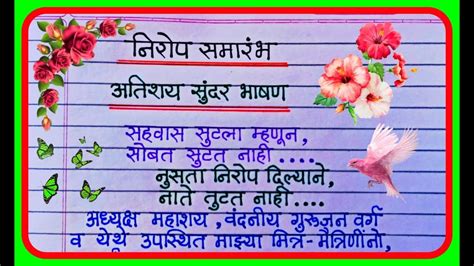 निरोप समारंभ
अतिशय सुंदर भाषण
सहवास सुटला म्हणून,
सोबत सुटत नाही....
नुसता निरोप दिल्याने,
नाते तुटत नाही....
अध्यक्ष महाशय, वंदनीय गुरुजन वर्ग
व येथे उपस्थित माझ्या मित्र-मैत्रिणींनो,